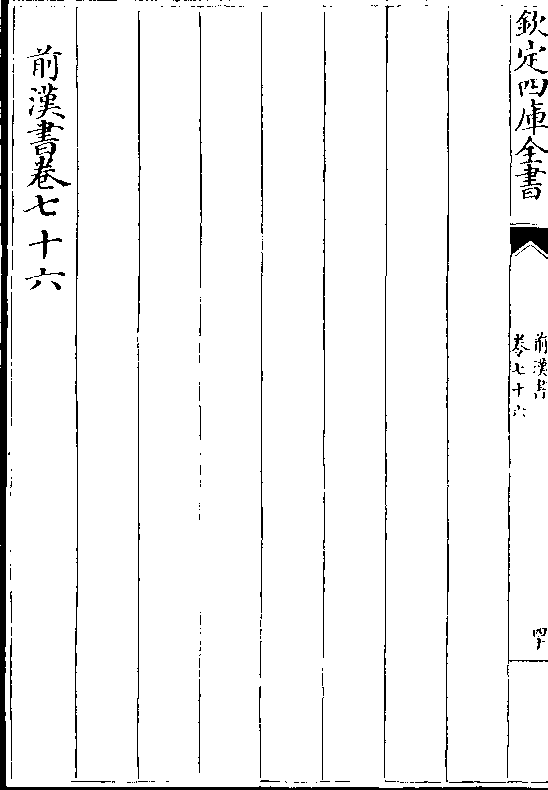 欽定四庫全書
前漢書
卷七十六
四十
前漢書卷七十六